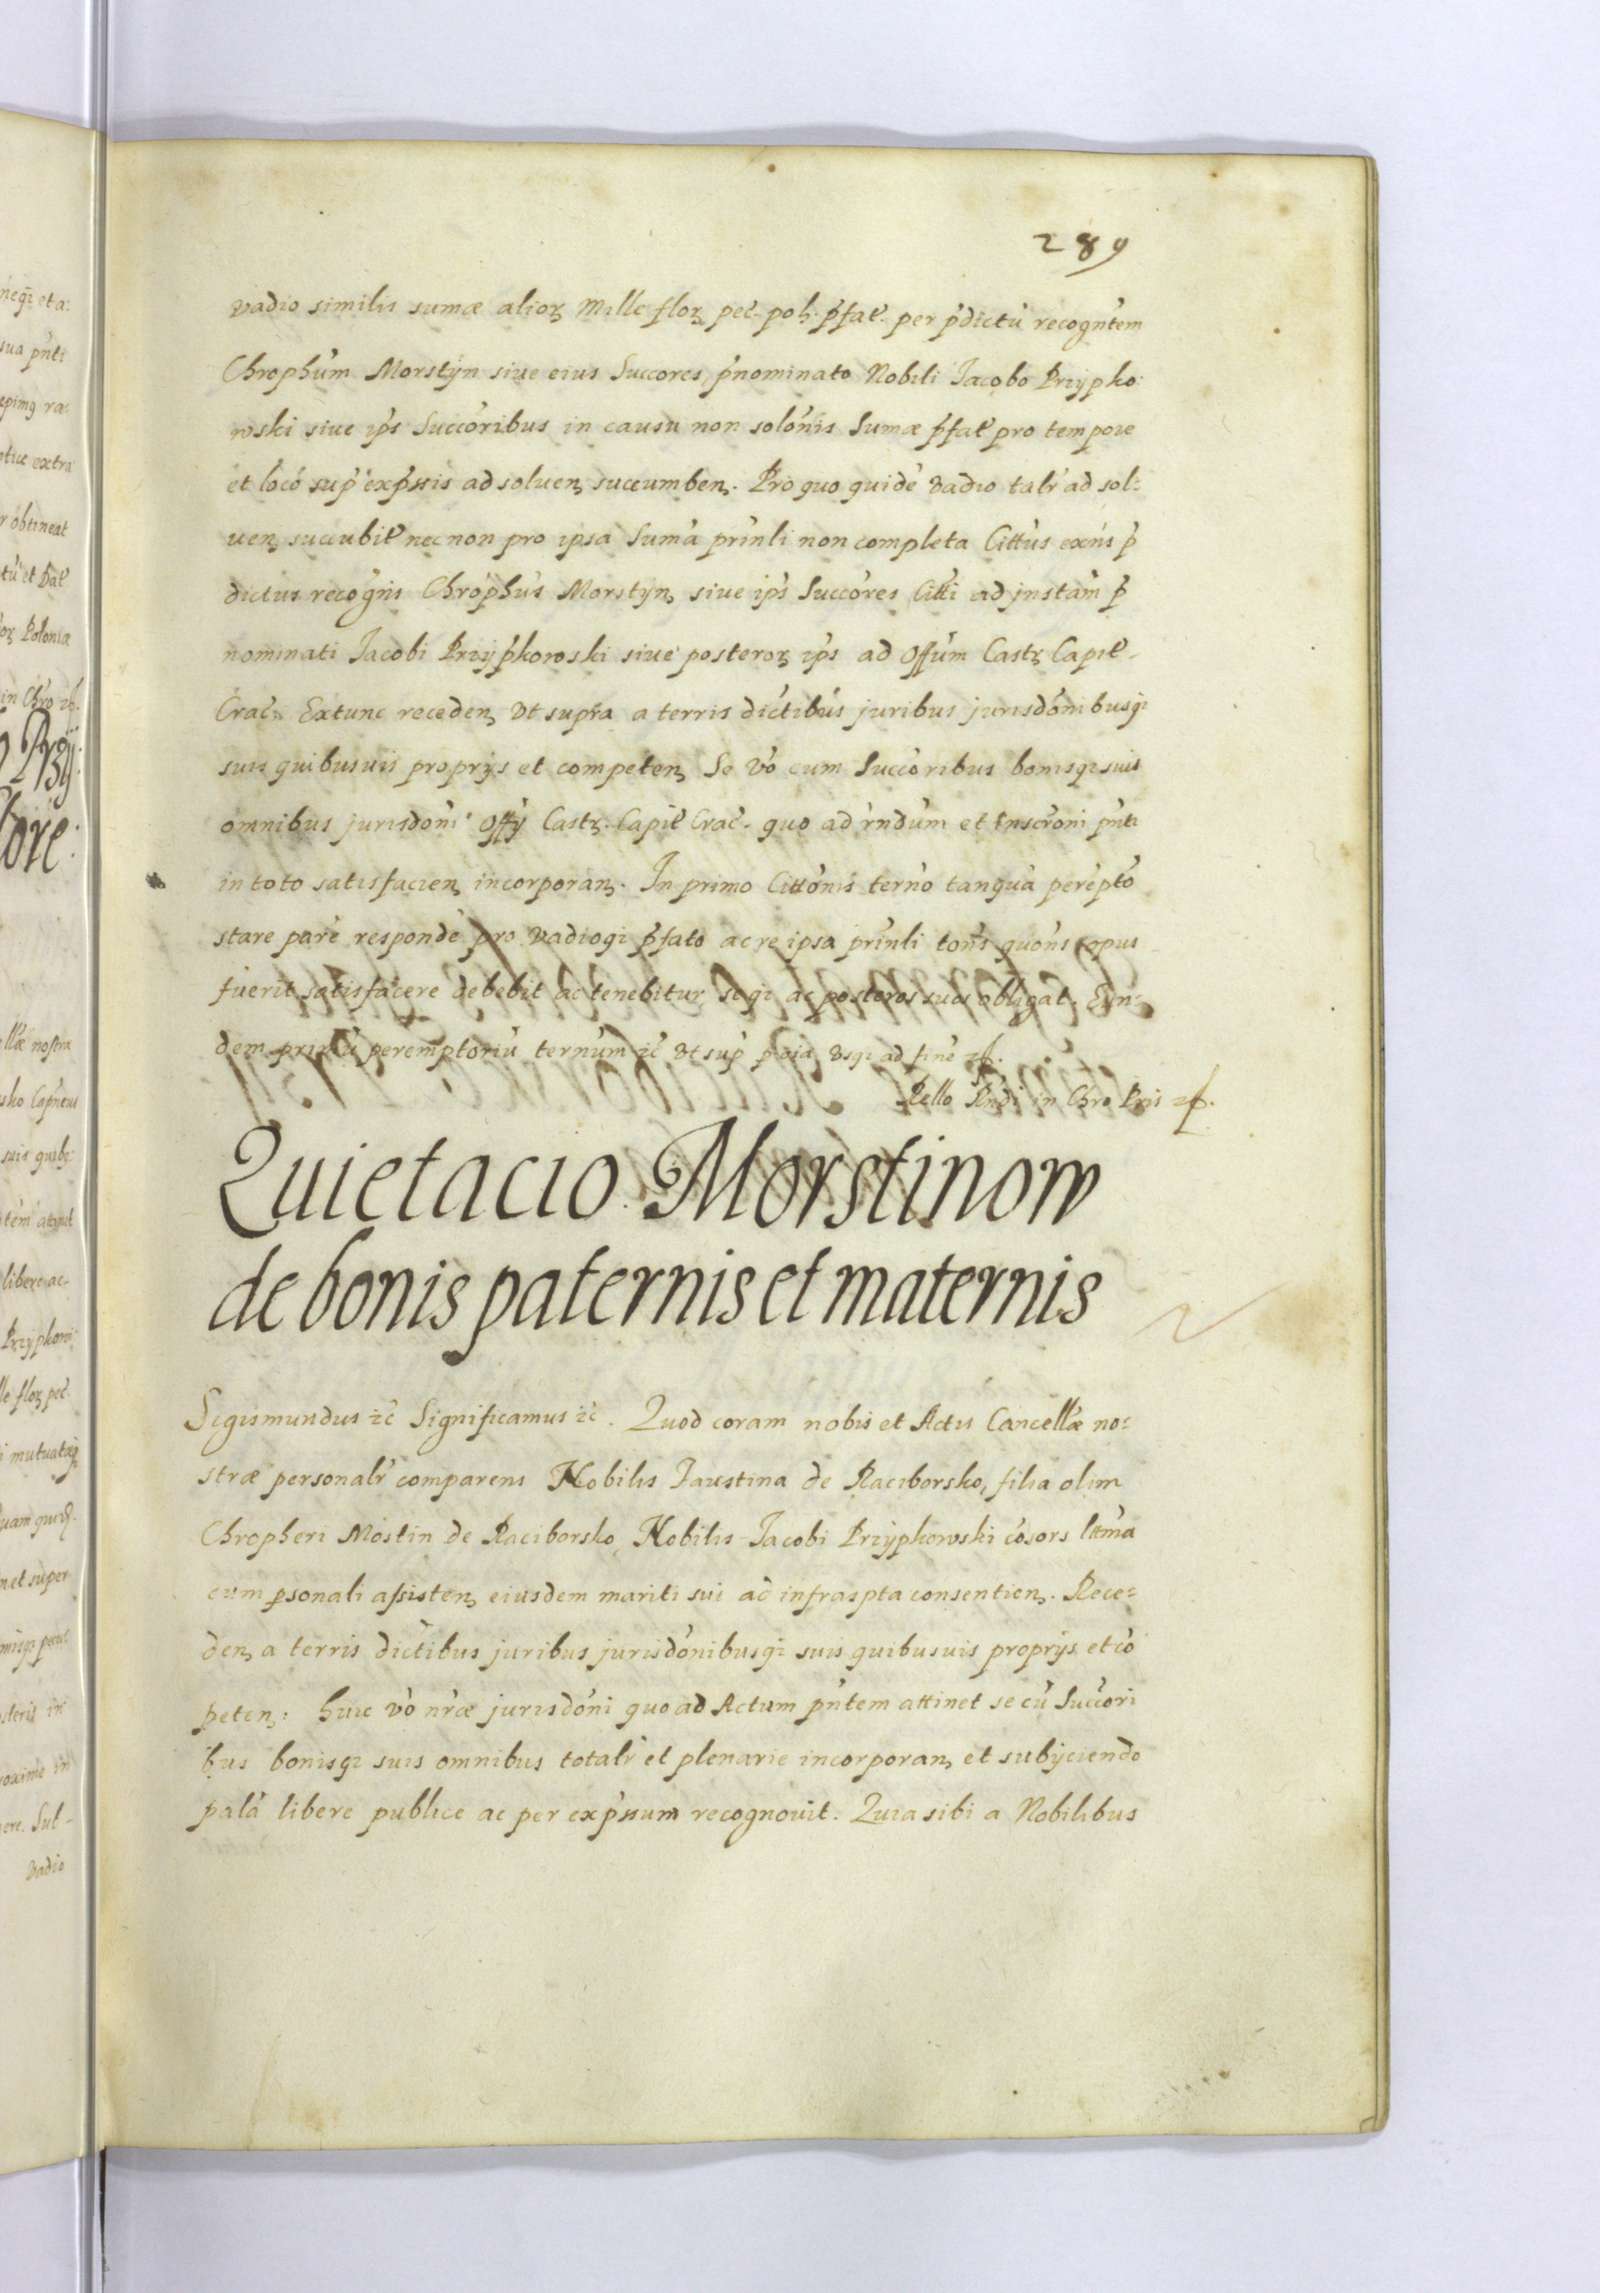 289
vadio similis sumæ alioꝝ Mille floꝝ pec̃. pol. p̃fat̃. per p̃dictũ recogn̄tem
Chrophũm Morstÿn siue eius Succores, p̃nominato Nobili Jacobo Przÿpko:
wski siue ip̃s Succõribus in causa non solõnis Sumæ p̃fat̃ pro tempore
et loco sup̃ exp̃ssis ad soluen. succumben. Pro quo quidẽ vadio talr̃ ad sol:
uen. succubit̃ nec non pro ipsa Sum̃a prĩnli non completa Cittus exñs p̃
dictus recogñis Chrõphũs Morstÿn, siue ip̃s Succõres Citti ad jnstam̃ p̃
nominati Jacobi Przÿpkowski siue posteroꝝ ip̃s ad Offũm Castꝝ Capit̃.
Crac̃. Extunc receden. vt supra a terris dictibũs juribus jurisdõnibusqꝫ
suis quibusuis proprijs et competen. Se vo cum Succoribus bonisqꝫ suis
omnibus jurisdõni Offÿ Castꝝ. Capit̃ Crac̃. quo ad rñdũm et Inscrõni pñti
in toto satisfacien. incorporan. In primo Cittõnis terno tanquã perẽptõ
stare parẽ respondẽ pro vadioqꝫ p̃fato ac re ipsa prĩnli tonS quonS opus
fuerit satisfacere debebit ac tenebitur, seqꝫ ac posteros suos obligat. Eun-
dem primũ peremptoriũ ternũm zc̃ vt sup̃ p oĩa vsqꝫ ad finẽ
Rello Rñdi in Chro Pris
Quietacio Morstinow
de bonis paternis et maternis
Sigismundus zc̃ Significamus zc̃. Quod coram nobis et Actis Cancellæ no:
stræ personalr̃ comparens Nobilis Faustina de Raciborsko, filia olim
Chropheri Mostin de Raciborsko, Nobilis Jacobi Przÿpkowski cõsors lttma
cum psonali assisten. eiusdem mariti sui ac infraspta consentien. Rece-
den. a terris dictibus juribus jurisdõnibusqꝫ suis quibusuis proprijs et cõ
peten: huic vo nr̃æ jurisdõni quo ad Actum pñtem attinet se cũ Succori
bus bonisqꝫ suis omnibus totalr̃ et plenarie incorporan. et subijciendo
palã libere publice ac per exp̃ssum recognouit. Quia sibi a Nobilibus